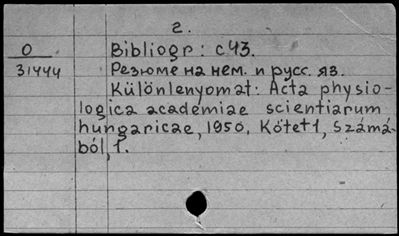 2.
O
31444
Bibliogr: c43.
Резюме на нем. и русс. яз.
Különlenyomat: Acta physio-
logica academiae scientiarum
hungaricae, 1950, Kötet 1, Számá-
ból, 1.